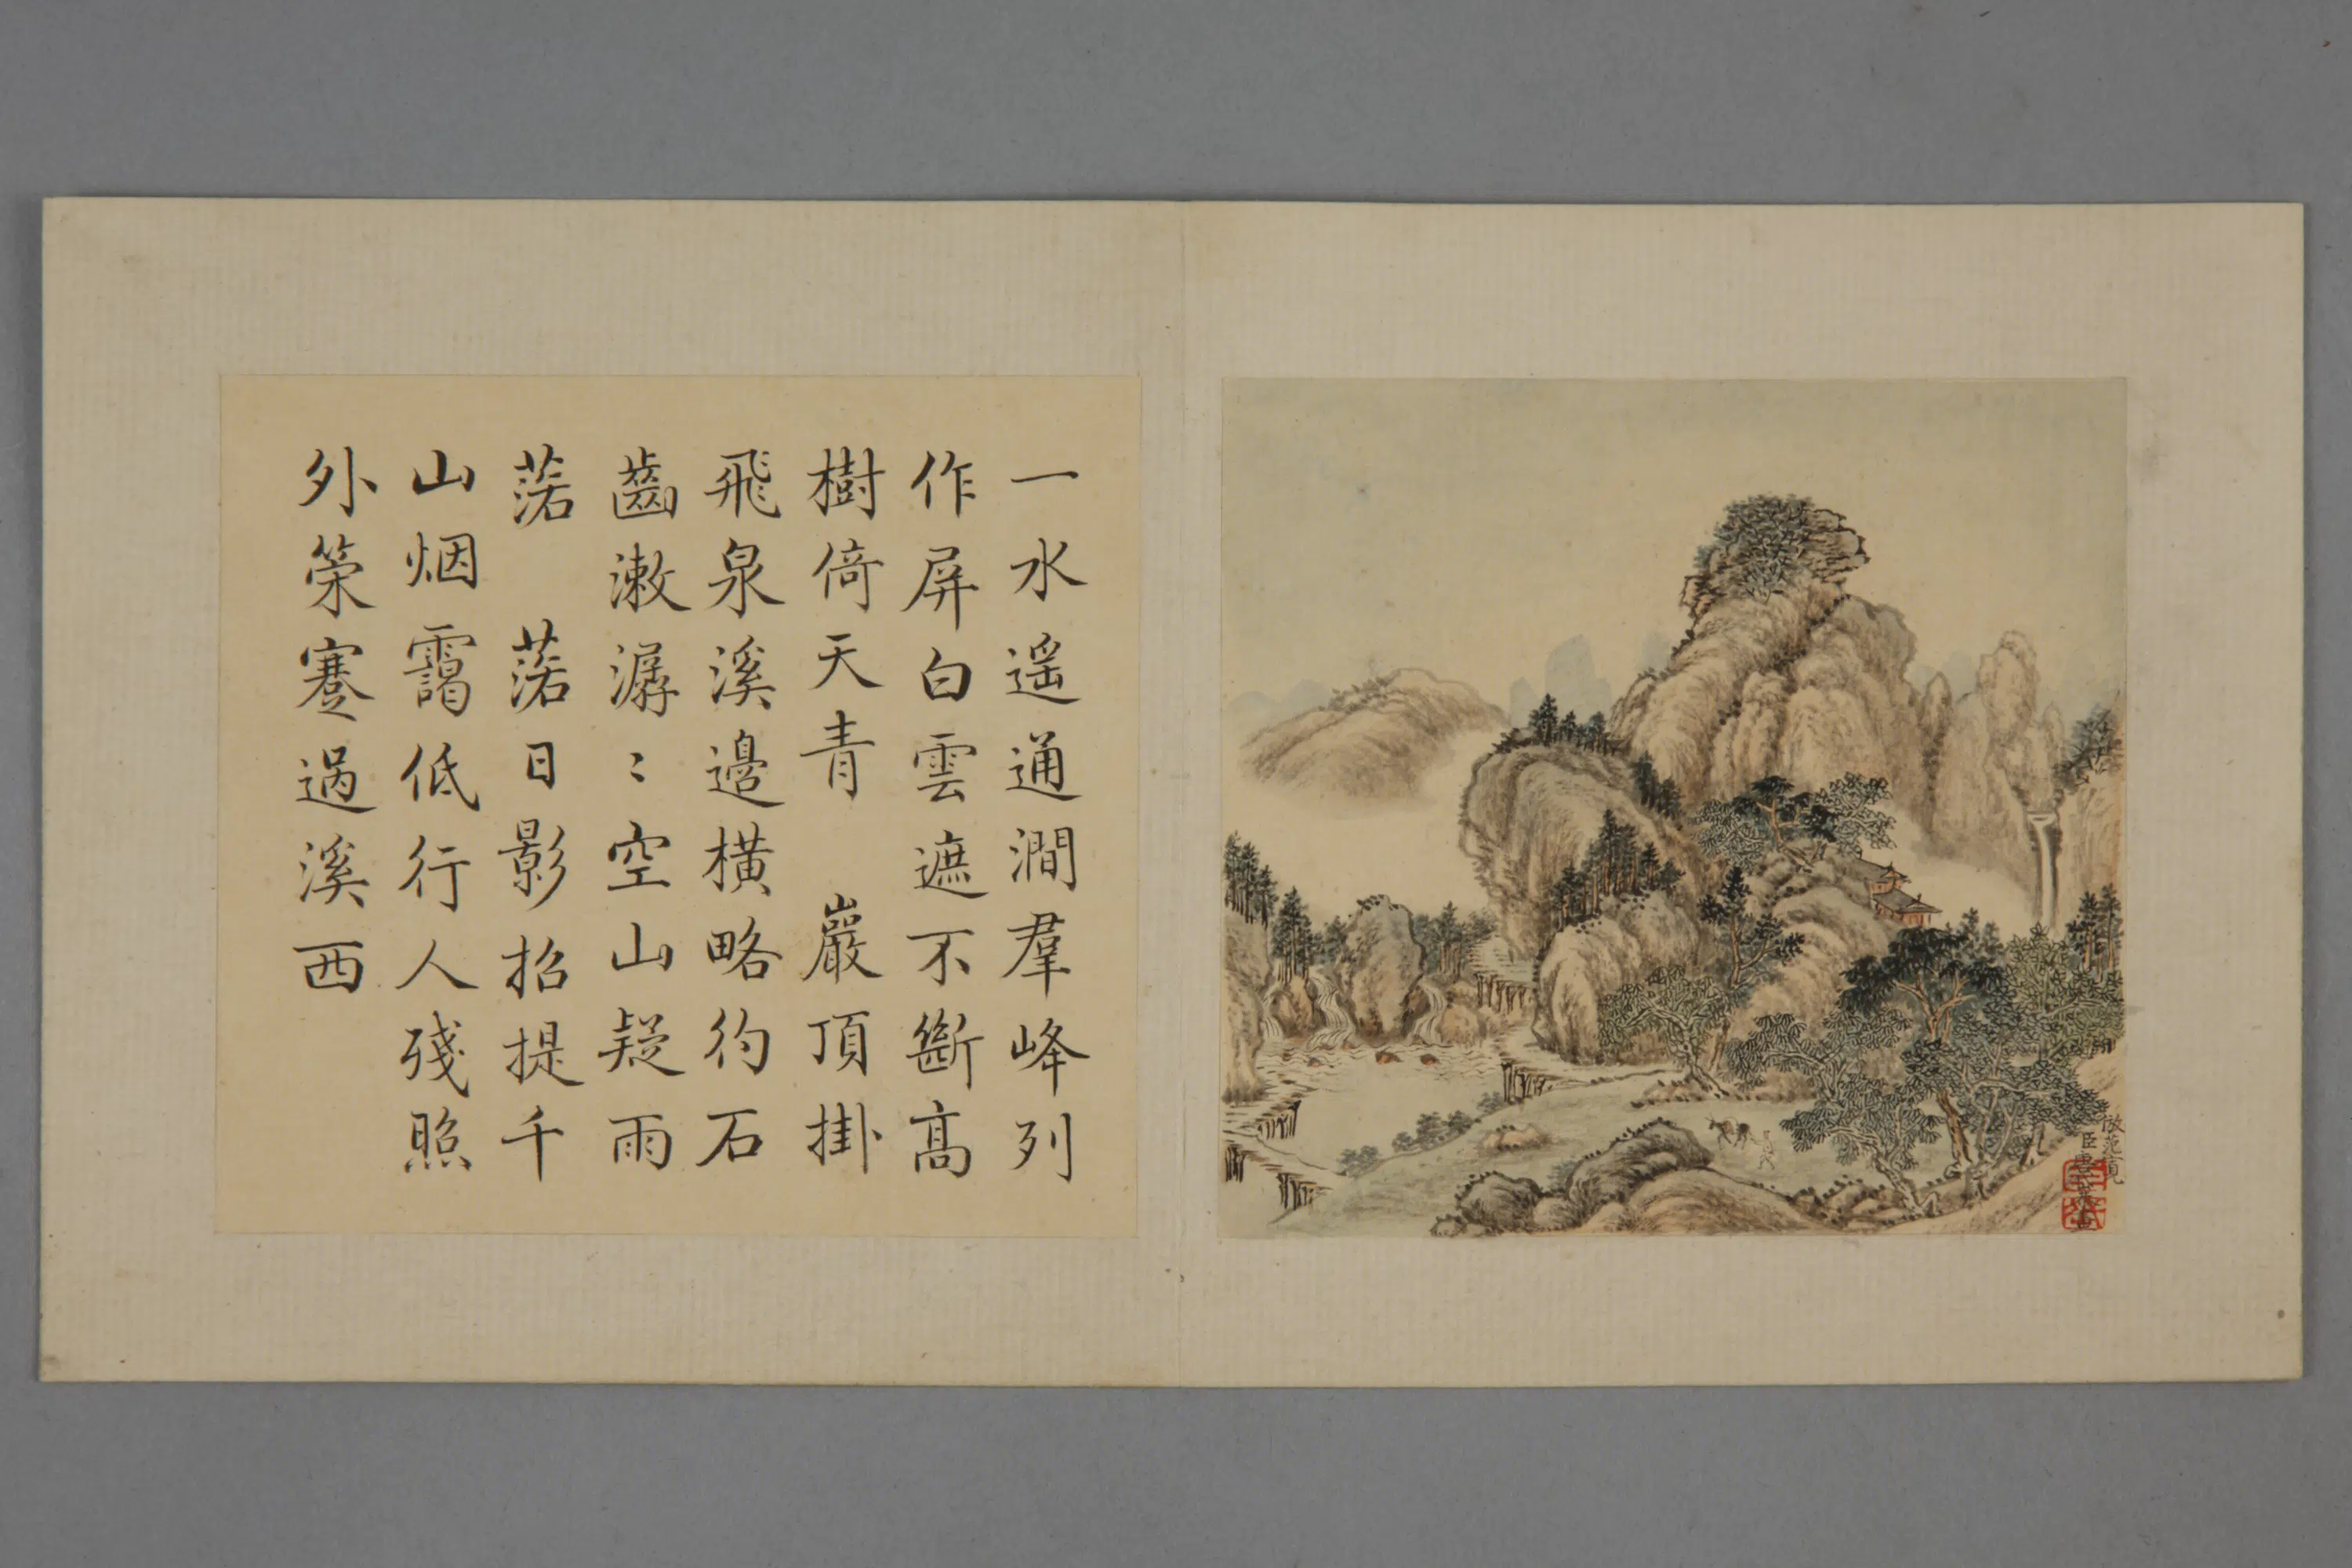 一水遥通澗羣峰列
作屏白雲遮不斷高
樹倚天青　巖頂掛
飛泉溪邊橫略彴石
齒漱潺〻空山疑雨
落　落日影招提千
山烟靄低行人殘照
外策蹇過溪西
倣范寬
臣